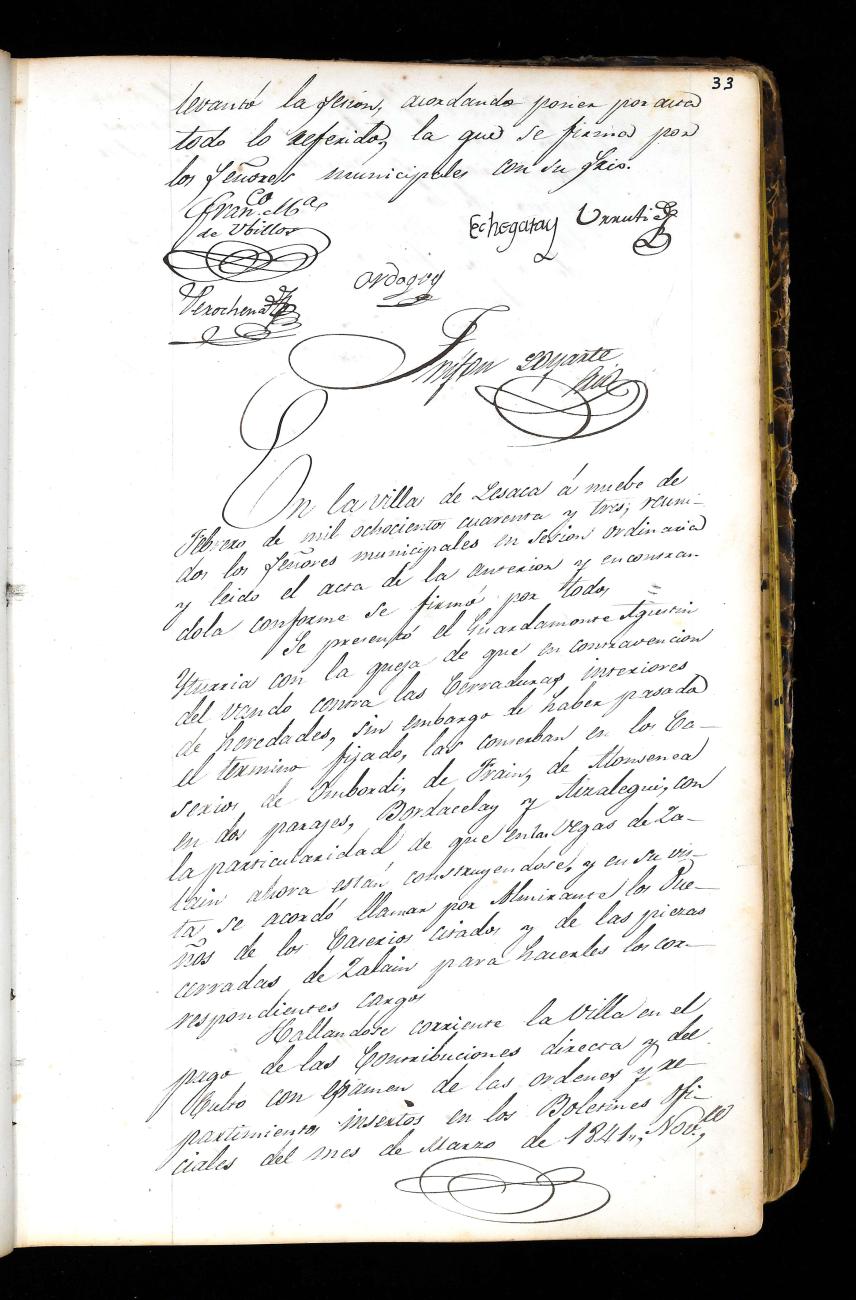 33
levantó la sesion, acordando poner por acta
todo lo referido, la que se firma por
los señores municipales con su Srio.
Fran.co M.a
de Ubillos
Echegaray Urrutia
Ordoqui
Perochena
Loyarte
Srio
En la villa de Lesaca á nuebe de
Febrero de mil ochocientos cuarenta y tres; reuni-
dos los señores municipales en sesion ordinaria
y leido el acta de la anterior y encontran-
dola conforme se firmó por todos =
Se presentó el Guardamonte Agustin
Yturria con la queja de que en contravencion
del vando contra las Cerraduras interiores
de heredades, sin embargo de haber pasado
el termino fijado, las conserban en los Ca-
serios de Ombordi, de Frain, de Monsenea
en dos parajes, Bordacelay y Airalegui, con
la particularidad de que en las vegas de Za-
lain ahora están construyendose, y en su vis-
ta se acordó llamar por Alminante los Due-
ños de los Caserios citados y de las piezas
cerradas de Zalain para hacerles los cor-
respondientes cargos
Hallandose corriente la Villa en el
pago de las Contribuciones directa y del
Culto con esamen de las ordenes y re-
partimientos insertos en los Boletines ofi-
ciales del mes de Marzo de 1841., Nov.,